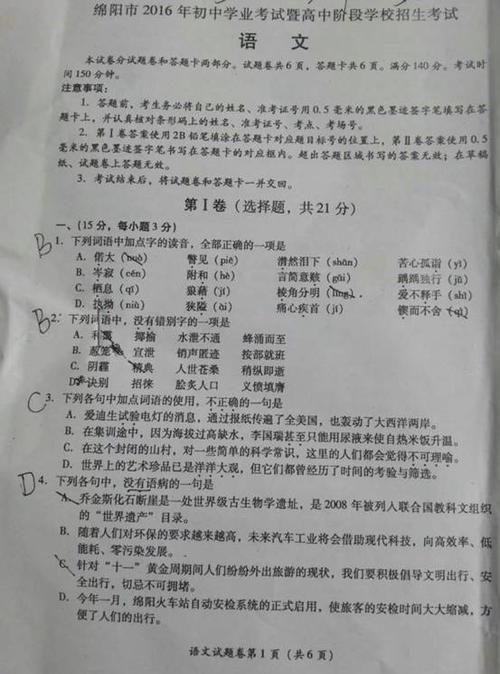 绵阳市 2016 年初中学业考试暨高中阶段学校招生考试
语 文
本试卷分试题卷和答题卡两部分。试题卷共 6 页，答题卡共 6 页。满分 140 分。考试时
间 150 分钟。
注意事项：
1. 答题前，考生务必将自己的姓名、准考证号用 0.5 毫米的黑色墨迹签字笔填写在答
题卡上，并认真核对条形码上的姓名、准考证号、考点、考场号。
2. 第Ⅰ卷答案使用 2B 铅笔填涂在答题卡对应题目标号的位置上，第Ⅱ卷答案使用 0.5
毫米的黑色墨迹签字笔书写在答题卡的对应框内。超出答题区域书写的答案无效；在草稿
纸、试题卷上答题无效。
3. 考试结束后，将试题卷和答题卡一并交回。
第Ⅰ卷（选择题，共 21 分）
一、（15 分，每小题 3 分）
B 1. 下列词语中加点字的读音，全部正确的一项是
A. 偌大（nuò） 瞥见（piē） 潸然泪下（shān） 苦心孤诣（yì）
B. 岑寂（cén） 附和（hè） 言简意赅（gāi） 踽踽独行（jǔ）
C. 栖息（qī） 狼藉（jí） 棱角分明（líng） 爱不释手（shì）
D. 执拗（niù） 狭隘（ài） 痛心疾首（jí） 锲而不舍（qì）
B 2. 下列词语中，没有错别字的一项是
A. 揶揄 水泄不通 蜂涌而至
B. 葱笼 宣泄 销声匿迹 按部就班
C. 阴霾 精典 人世苍桑 稍纵即逝
D. 诀别 招徕 脍炙人口 义愤填膺
C 3. 下列各句中加点词语的使用，不正确的一句是
A. 爱迪生试验电灯的消息，通过报纸传遍了全美国，也轰动了大西洋两岸。
B. 在集训途中，因为海拔过高缺水，李国瑞甚至只能用尿液来使自热米饭升温。
C. 在这个封闭的山村，对一些简单的科学常识，这里的人们都会觉得不可理喻。
D. 世界上的艺术珍品已是洋洋大观，但它们都曾经历了时间的考验与筛选。
D 4. 下列各句中，没有语病的一句是
A. 乔金斯化石断崖是一处世界级古生物学遗址，是 2008 年被列入联合国教科文组织
的“世界遗产”目录。
B. 随着人们对环保的要求越来越高，未来汽车工业将会借助现代科技，向高效率、低
能耗、零污染发展。
C. 针对“十一”黄金周期间人们纷纷外出旅游的现状，我们要积极倡导文明出行、安
全出行，切忌不可拥堵。
D. 今年一月，绵阳火车站自动安检系统的正式启用，使旅客的安检时间大大缩减，方
便了人们的出行。
语文试题卷第 1 页（共 6 页）